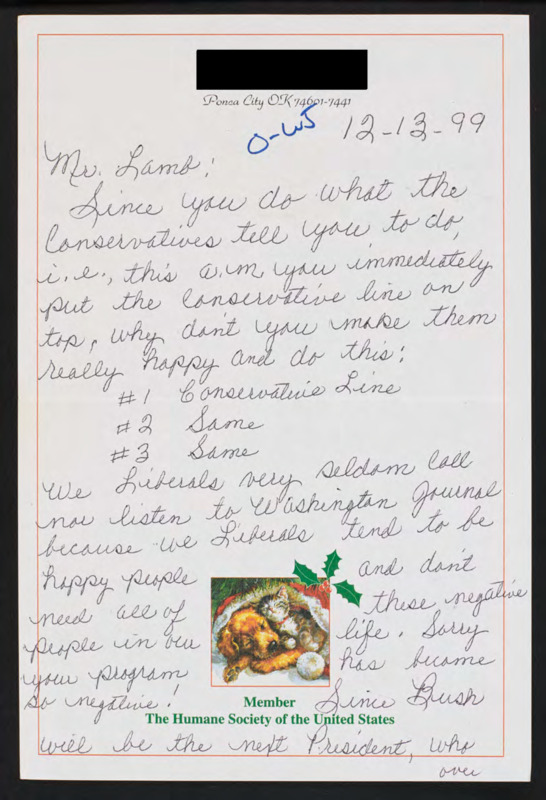 Ponca City OK 74601-7441
O-WJ
12-13-99
Mr. Lamb:
Since you do what the
Conservatives tell you to do,
i.e., this a.m. you immediately
put the Conservative line on
top, why don't you make them
really happy and do this:
#1 Conservative Line
#2 Same
#3 Same
We Liberals very seldom call
nor listen to Washington Journal
because we Liberals tend to be
happy people and don't
need all of these negative
people in our life. Sorry
your program has become
so negative! Since Bush
Member
The Humane Society of the United States
will be the next President, who
over